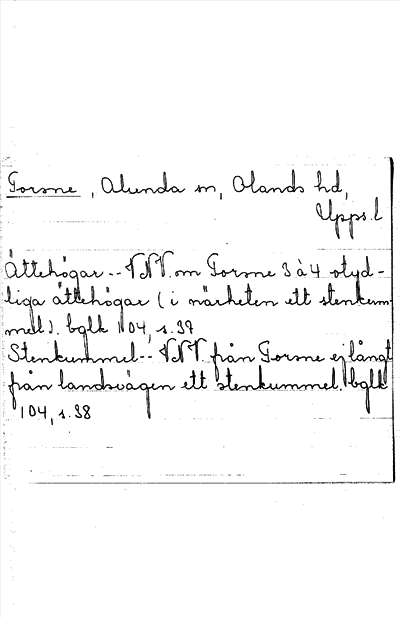 Forsne, Alunda sn, Olands hd,
Upps. l
Ättehögar -- VNV om Forsne 3 à 4 otyd-
liga ättehögar (i närheten ett stenkum-
mel). bglk 104, s. 37
Stenkummel -- VNV från Forsne ej långt
från landsvägen ett stenkummel. bglk
104, s. 38